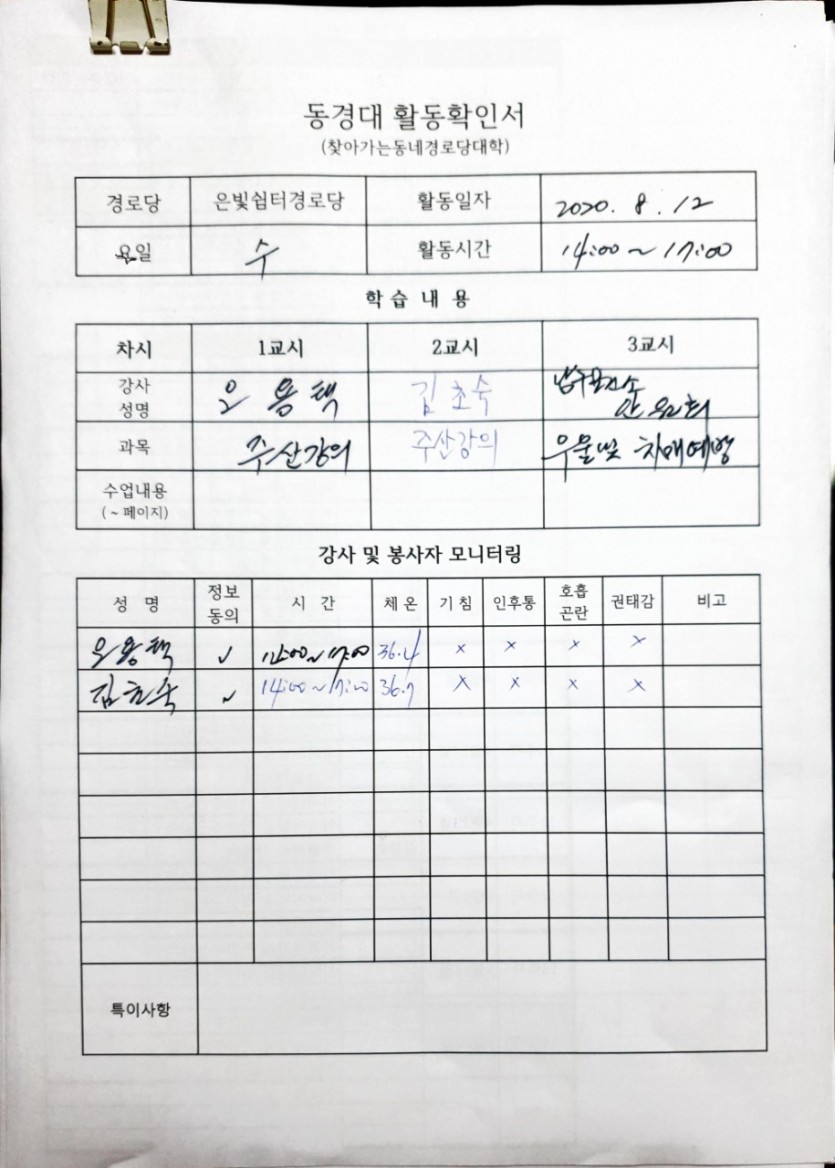 동경대 활동확인서
(찾아가는동네경로당대학)
경로당 은빛쉼터경로당 활동일자 2020. 8. 12
요일 수 활동시간 14:00 ~ 17:00
학 습 내 용
차시 1교시 2교시 3교시
강사 성명 오용택 김초숙 남구보건소
과목 주산강의 주산강의 우울및 치매예방
수업내용
(~ 페이지)
강사 및 봉사자 모니터링
성 명 정보 동의 시 간 체 온 기 침 인후통 호흡 곤란 권태감 비고
오용택 ✓ 14:00~17:00 36.4 × × × ×
김초숙 ✓ 14:00~17:00 36.7 × × × ×
특이사항